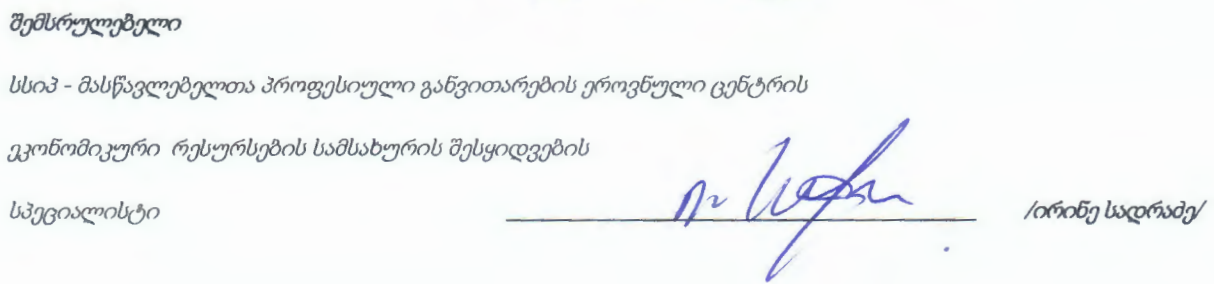 შემსრულებელი
სსიპ - მასწავლებელთა პროფესიული განვითარების ეროვნული ცენტრის
ეკონომიკური რესურსების სამსახურის შესყიდვების
სპეციალისტი /ირინე სადრაძე/